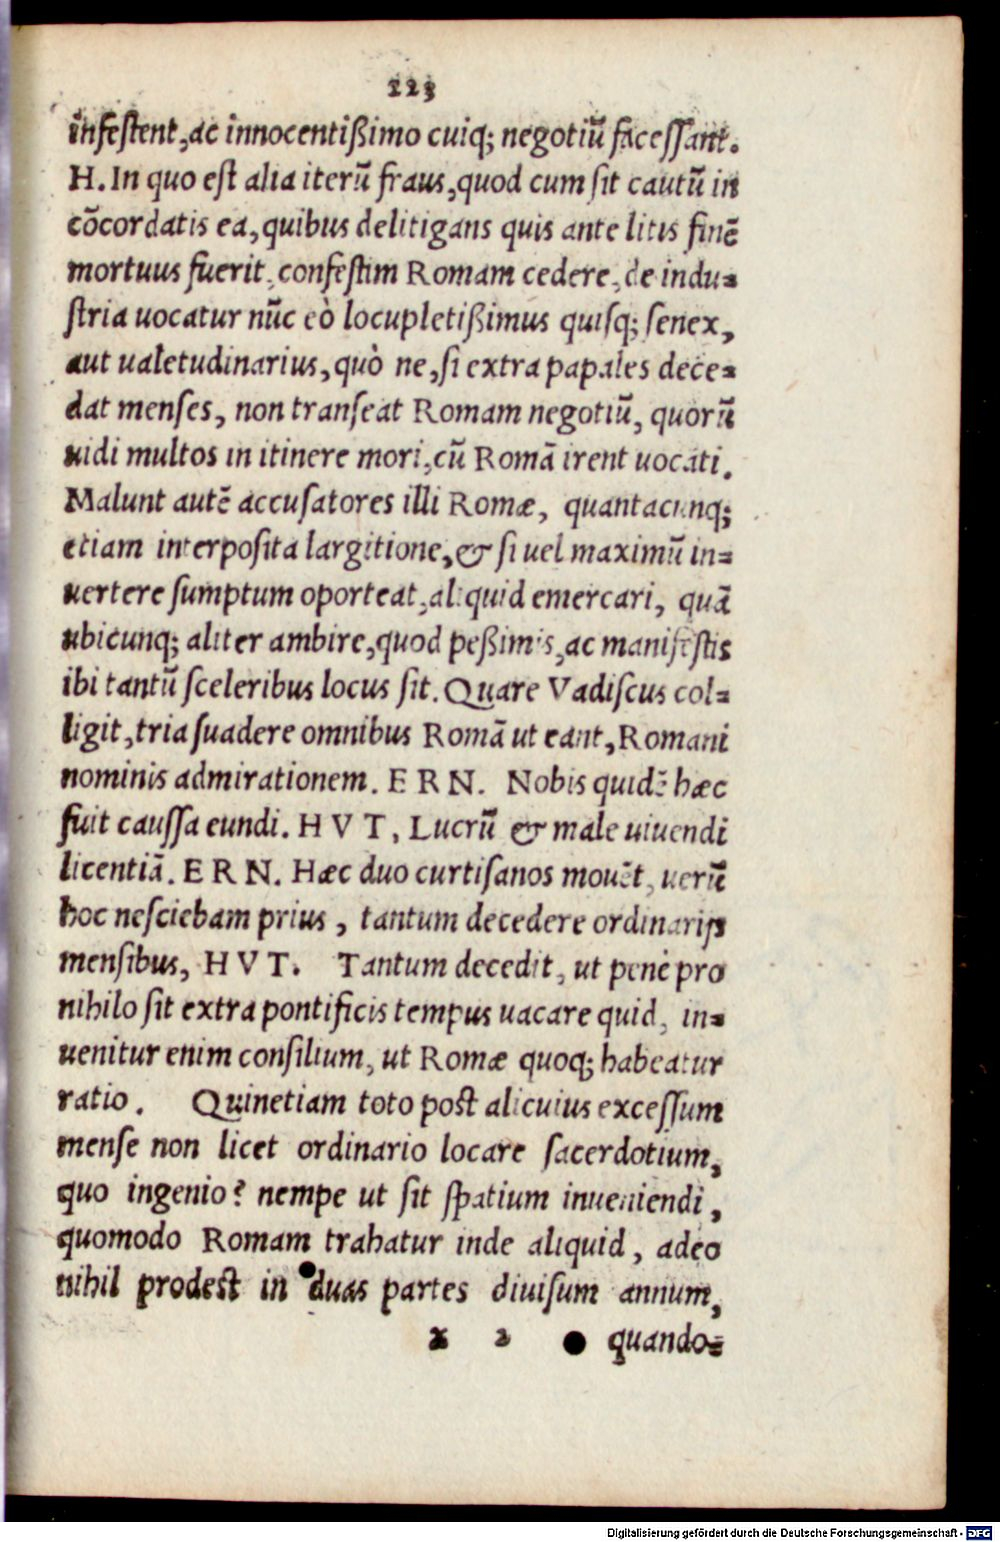 223
infestent, ac innocentißimo cuiq; negotiũ facessant.
H. In quo est alia iterũ fraus, quod cum sit cautũ in
cõcordatis ea, quibus delitigans quis ante litis finẽ
mortuus fuerit, confestim Romam cedere, de indu-
stria uocatur nũc eò locupletißimus quisq; senex,
aut ualetudinarius, quò ne, si extra papales dece-
dat menses, non transeat Romam negotiũ, quorũ
uidi multos in itinere mori, cũ Romã irent uocati.
Malunt autẽ accusatores illi Romæ, quantacunq;
etiam interposita largitione, & si uel maximũ in-
uertere sumptum oporteat, aliquid emercari, quã
ubicunq; aliter ambire, quod peßimis, ac manifestis
ibi tantũ sceleribus locus sit. Quare Vadiscus col-
ligit, tria suadere omnibus Romã ut eant, Romani
nominis admirationem. E R N. Nobis quidẽ hæc
fuit caussa eundi. H V T, Lucrũ & male uiuendi
licentiã. E R N. Hæc duo curtisanos mouẽt, uerũ
hoc nesciebam prius, tantum decedere ordinarijs
mensibus, H V T. Tantum decedit, ut penè pro
nihilo sit extra pontificis tempus uacare quid, in-
uenitur enim consilium, ut Romæ quoq; habeatur
ratio. Quinetiam toto post alicuius excessum
mense non licet ordinario locare sacerdotium,
quo ingenio? nempe ut sit spatium inueniendi,
quomodo Romam trahatur inde aliquid, adeo
nihil prodest in duas partes diuisum annum,
x 2 quando-
Digitalisierung gefördert durch die Deutsche Forschungsgemeinschaft - DFG